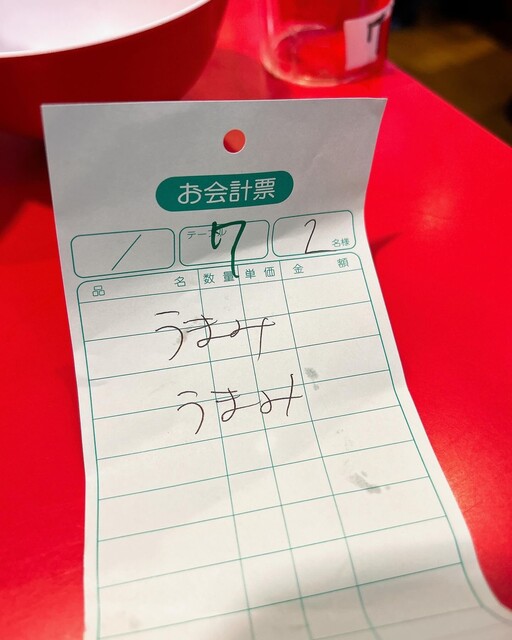 7
お会計票
/ テーブル 7 2 名様
品名 数量 単価 金額
うまみ
うまみ